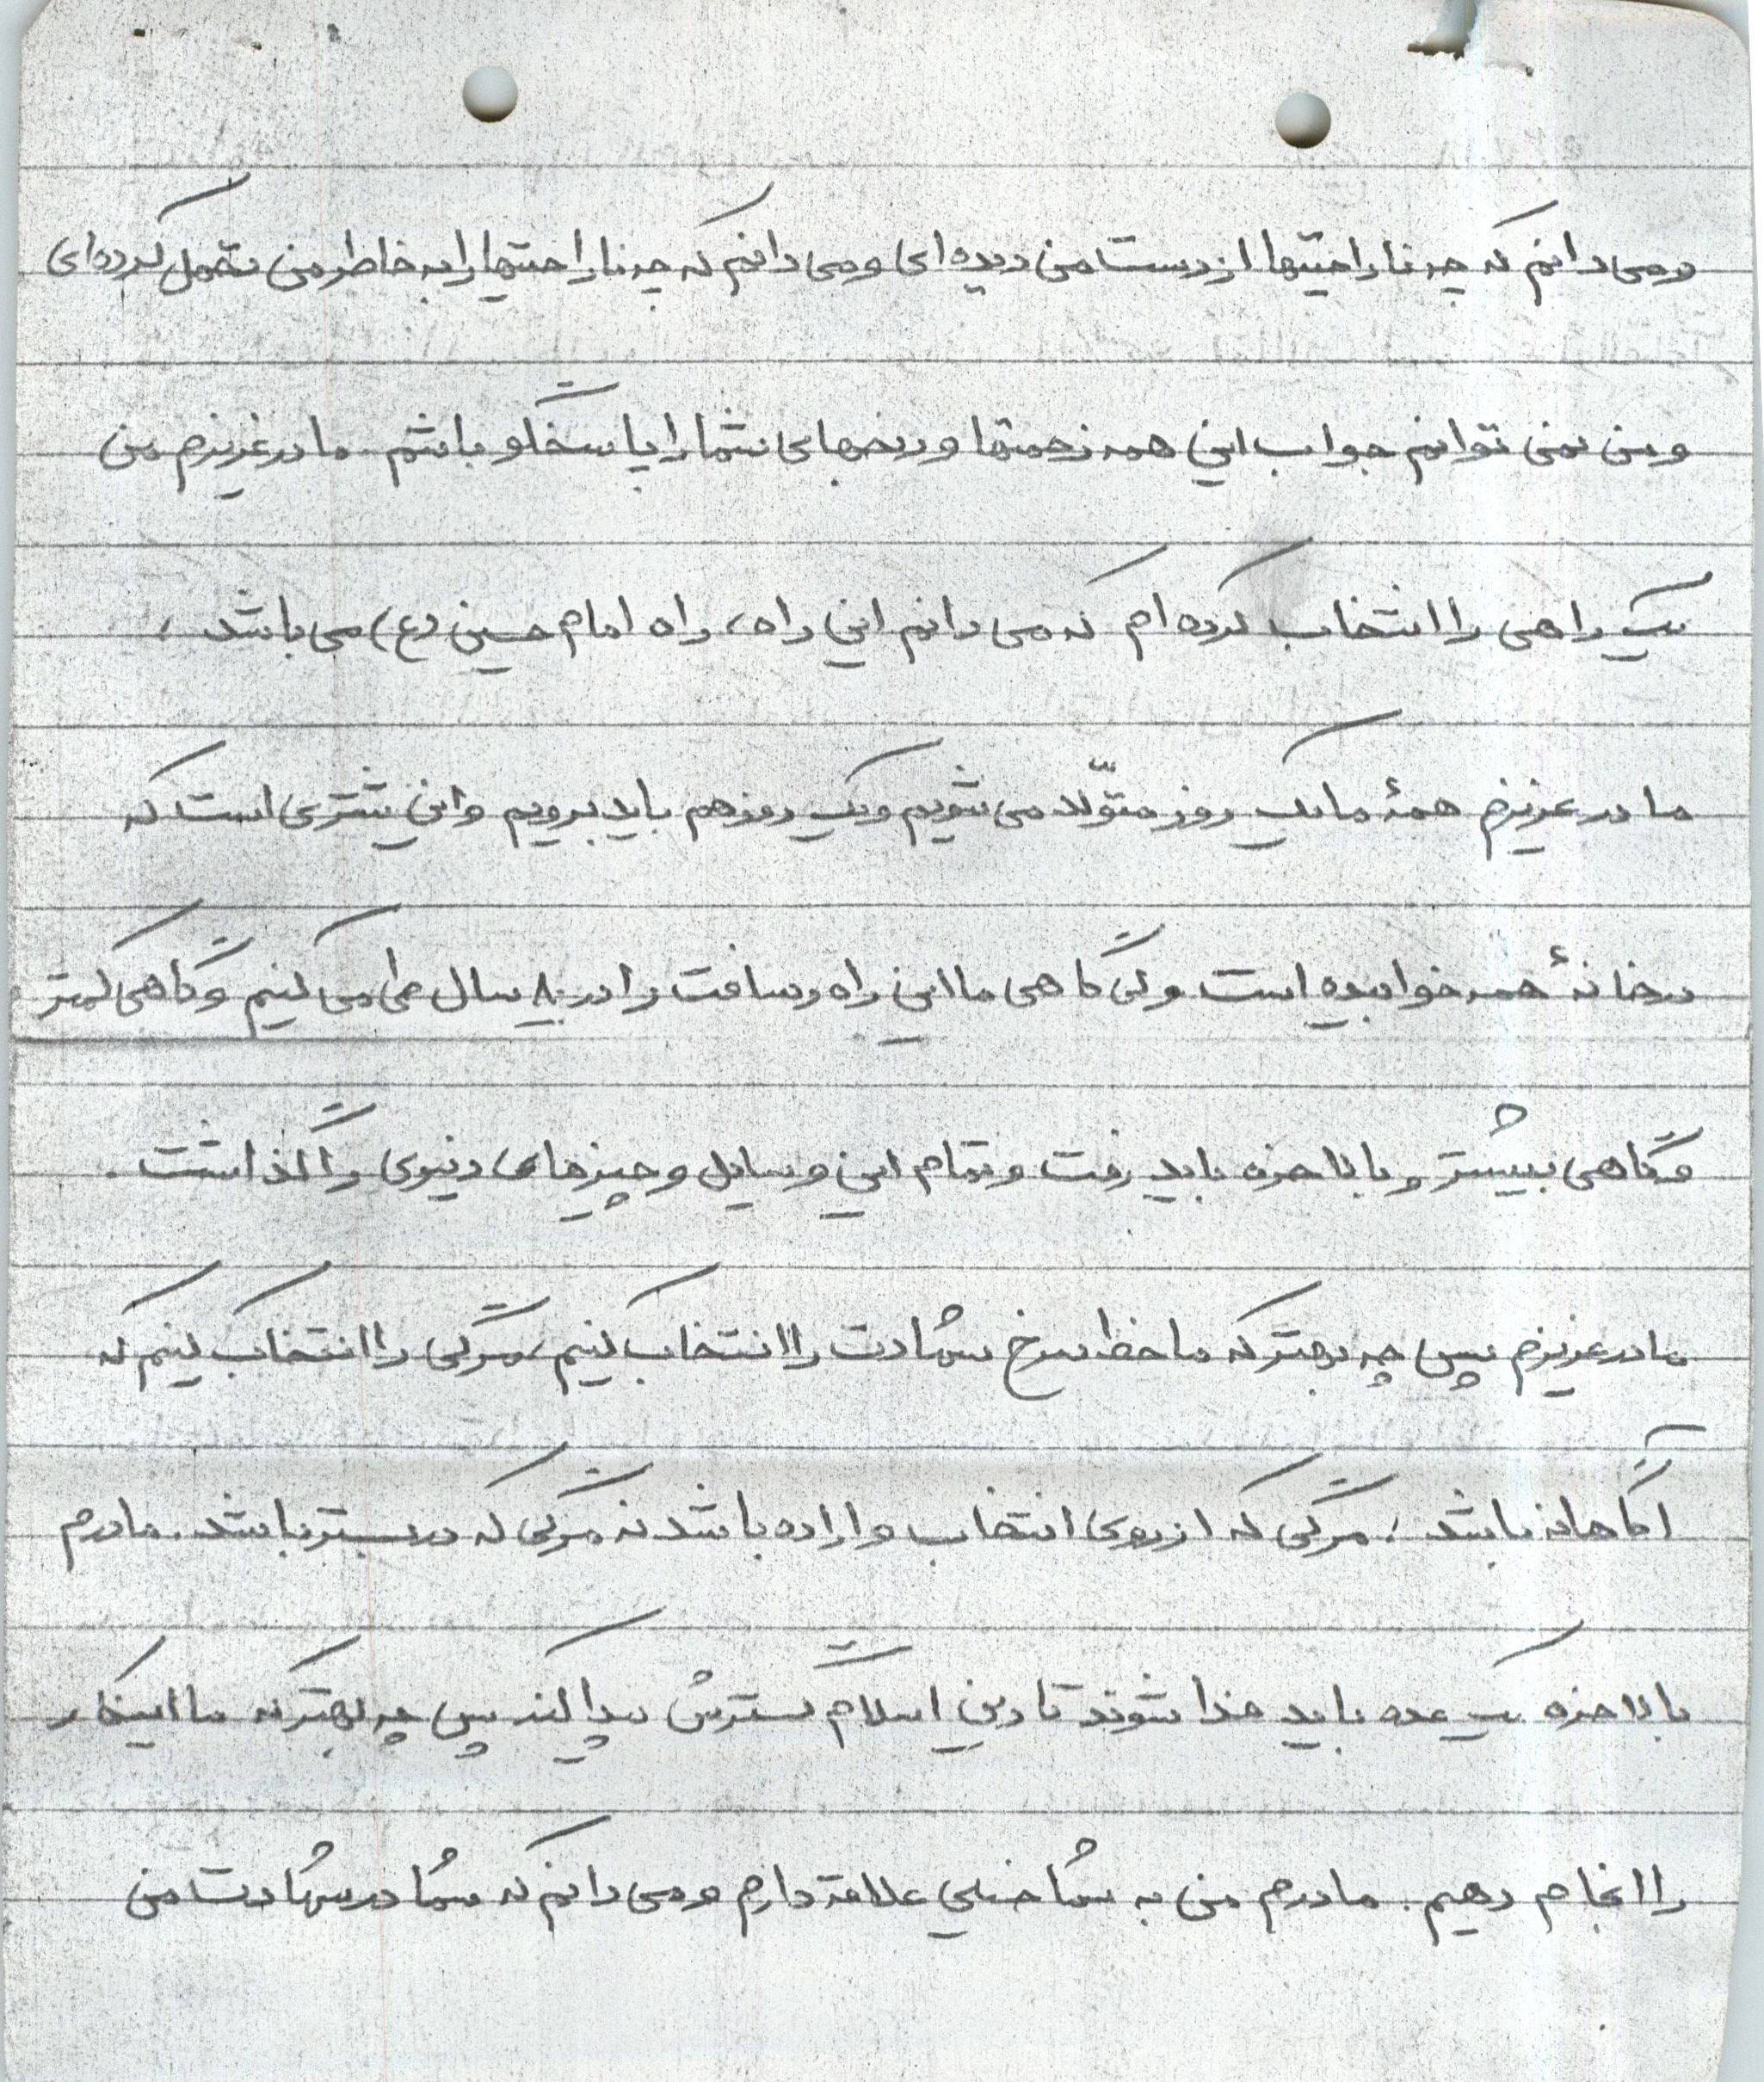 و می دانم که چه ناراحتیها از دست من دیده ای و می دانم که چه ناراحتیها را به خاطر من تحمل کرده ای
و من نمی توانم جواب این همه زحمتها و رنجهای شما را پاسخگو باشم. مادر عزیزم من
یک راهی را انتخاب کرده ام که می دانم این راه، راه امام حسین (ع) می باشد،
مادر عزیزم همهٔ ما یک روز متوّلد می شویم و یک روز هم باید برویم و این شتری است که
در خانهٔ همه خوابیده است ولی گاهی ما این راه و مسافت را در ۸۰ سال طی می کنیم و گاهی کمتر
و گاهی بیشتر و بالاخره باید رفت و تمام این وسایل و چیزهای دنیوی را گذاشت.
مادر عزیزم پس چه بهتر که ما خط سرخ شهادت را انتخاب کنیم، مرگی را انتخاب کنیم که
آگاهانه باشد، مرگی که از روی انتخاب و اراده باشد نه مرگی که در بستر باشد. مادرم
بالاخره یک عده باید فدا شوند تا دین اسلام گسترش پیدا کند پس چه بهتر که ما اینکار
را انجام دهیم. مادرم من به شما خیلی علاقه دارم و می دانم که شما در شهادت من